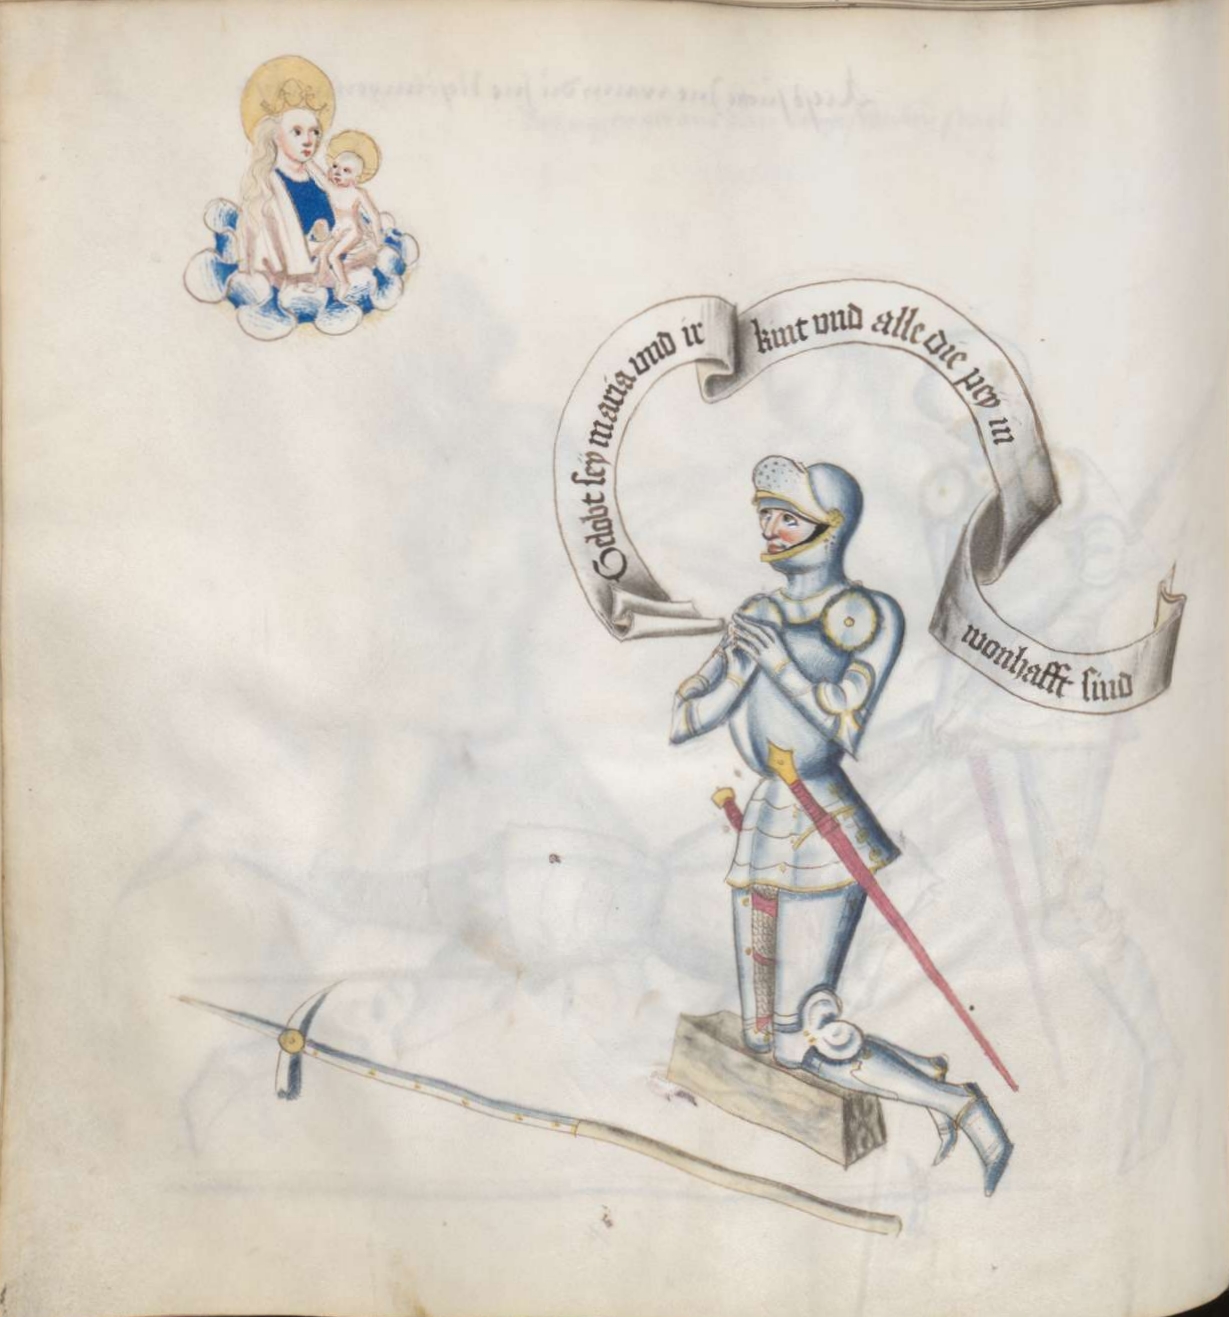 Gelobt sey maria vnd ir
kint vnd alle die pey in
wonhafft sind